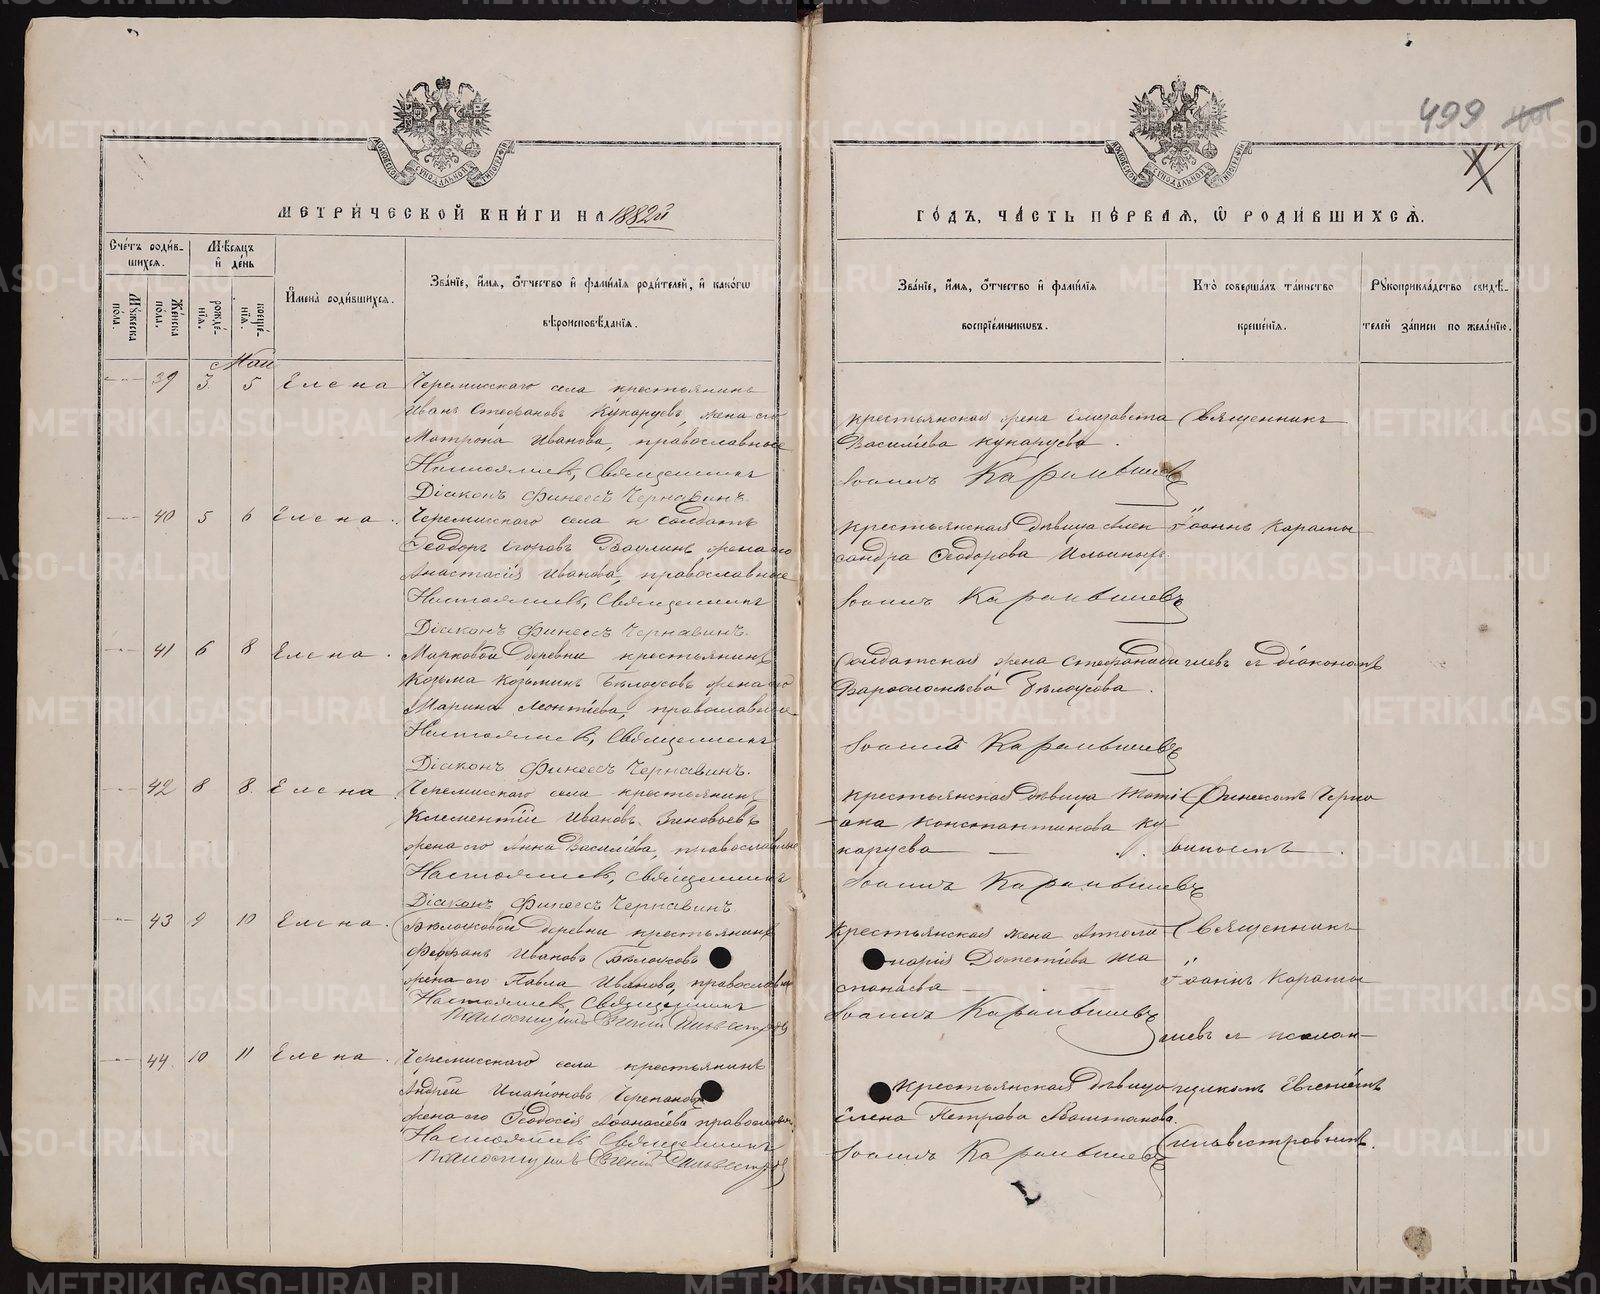 499
МЕТРИ́ЧЕСКОЙ КНИ́ГИ НА 1882й
ГО́ДЪ, ЧА́СТЬ ПЕ́РВАЯ, Ѡ РОДИ́ВШИХСЯ.
Сче́тъ роди́в-
шихся.
Му́жеска по́ла.
Же́нска по́ла.
Мѣ́сяцъ и де́нь
рожде́-
нія.
креще́-
нія.
Имена́ роди́вшихся.
Зва́ніе, и́мя, о́тчество и фами́лія роди́телей, и како́гѡ
вѣроисповѣ́данія.
Зва́ніе, и́мя, о́тчество и фами́лія
воспріе́мниковъ.
Кто̀ соверша́лъ та́инство
креще́нія.
Рукоприкла́дство свидѣ́-
телей за́писи по жела́нію.
Май
39 3 5 Елена
Черемисскаго села крестьянинъ
Иванъ Стефановъ Кукарцевъ, жена его
Матрона Иванова, православные
Священникъ
Діаконъ Финеесъ Чернавинъ.
крестьянская жена Елизавета
Василіева Кукарцева.
Іоаннъ Карамышевъ
Священникъ
40 5 6 Елена.
Черемисскаго села солдатъ
Ѳеодоръ Егоровъ Ваулинъ, жена его
Анастасія Иванова, православные
Священникъ
Діаконъ Финеесъ Чернавинъ.
крестьянская дѣвица Алек
сандра Ѳеодорова Ильиныхъ
Іоаннъ Карамышевъ
Іоаннъ Карамы
41 6 8 Елена.
Марковой деревни крестьянинъ
Козьма Козьминъ Бѣлоусовъ жена его
Марина Леонтіева, православные
Священникъ
Діаконъ Финеесъ Чернавинъ.
Солдатская жена Стефанида
Варѳоломѣева Бѣлоусова.
Іоаннъ Карамышевъ
шевъ съ діакономъ
42 8 8. Елена.
Черемисскаго села крестьянинъ
Климентій Ивановъ Зиновьевъ
жена его Анна Василіева, православные
Священникъ
Діаконъ Финеесъ Чернавинъ.
крестьянская дѣвица
Константинова Ку
карцева
Іоаннъ Карамышевъ
Финеесомъ Черна
винымъ.
43 9 10 Елена.
деревни крестьянинъ
Ивановъ Бѣлоусовъ
жена его Павла Иванова, православные
Священникъ
Псаломщикъ Евгеній Сильвестровъ
крестьянская жена Аполли
нарія Дометіева
Іоаннъ Карамышевъ
Священникъ
Іоаннъ Карамы
шевъ съ псалом-
44. 10 11 Елена.
Черемисскаго села крестьянинъ
Андрей Черепановъ
жена его Ѳеодосія Аѳанасіева православные
Священникъ
Псаломщикъ Евгеній Сильвестровъ
крестьянская дѣвица
Елена Петрова
Іоаннъ Карамышевъ
щикомъ Евгеніемъ
Сильвестровымъ.
METRIKI.GASO-URAL.RU